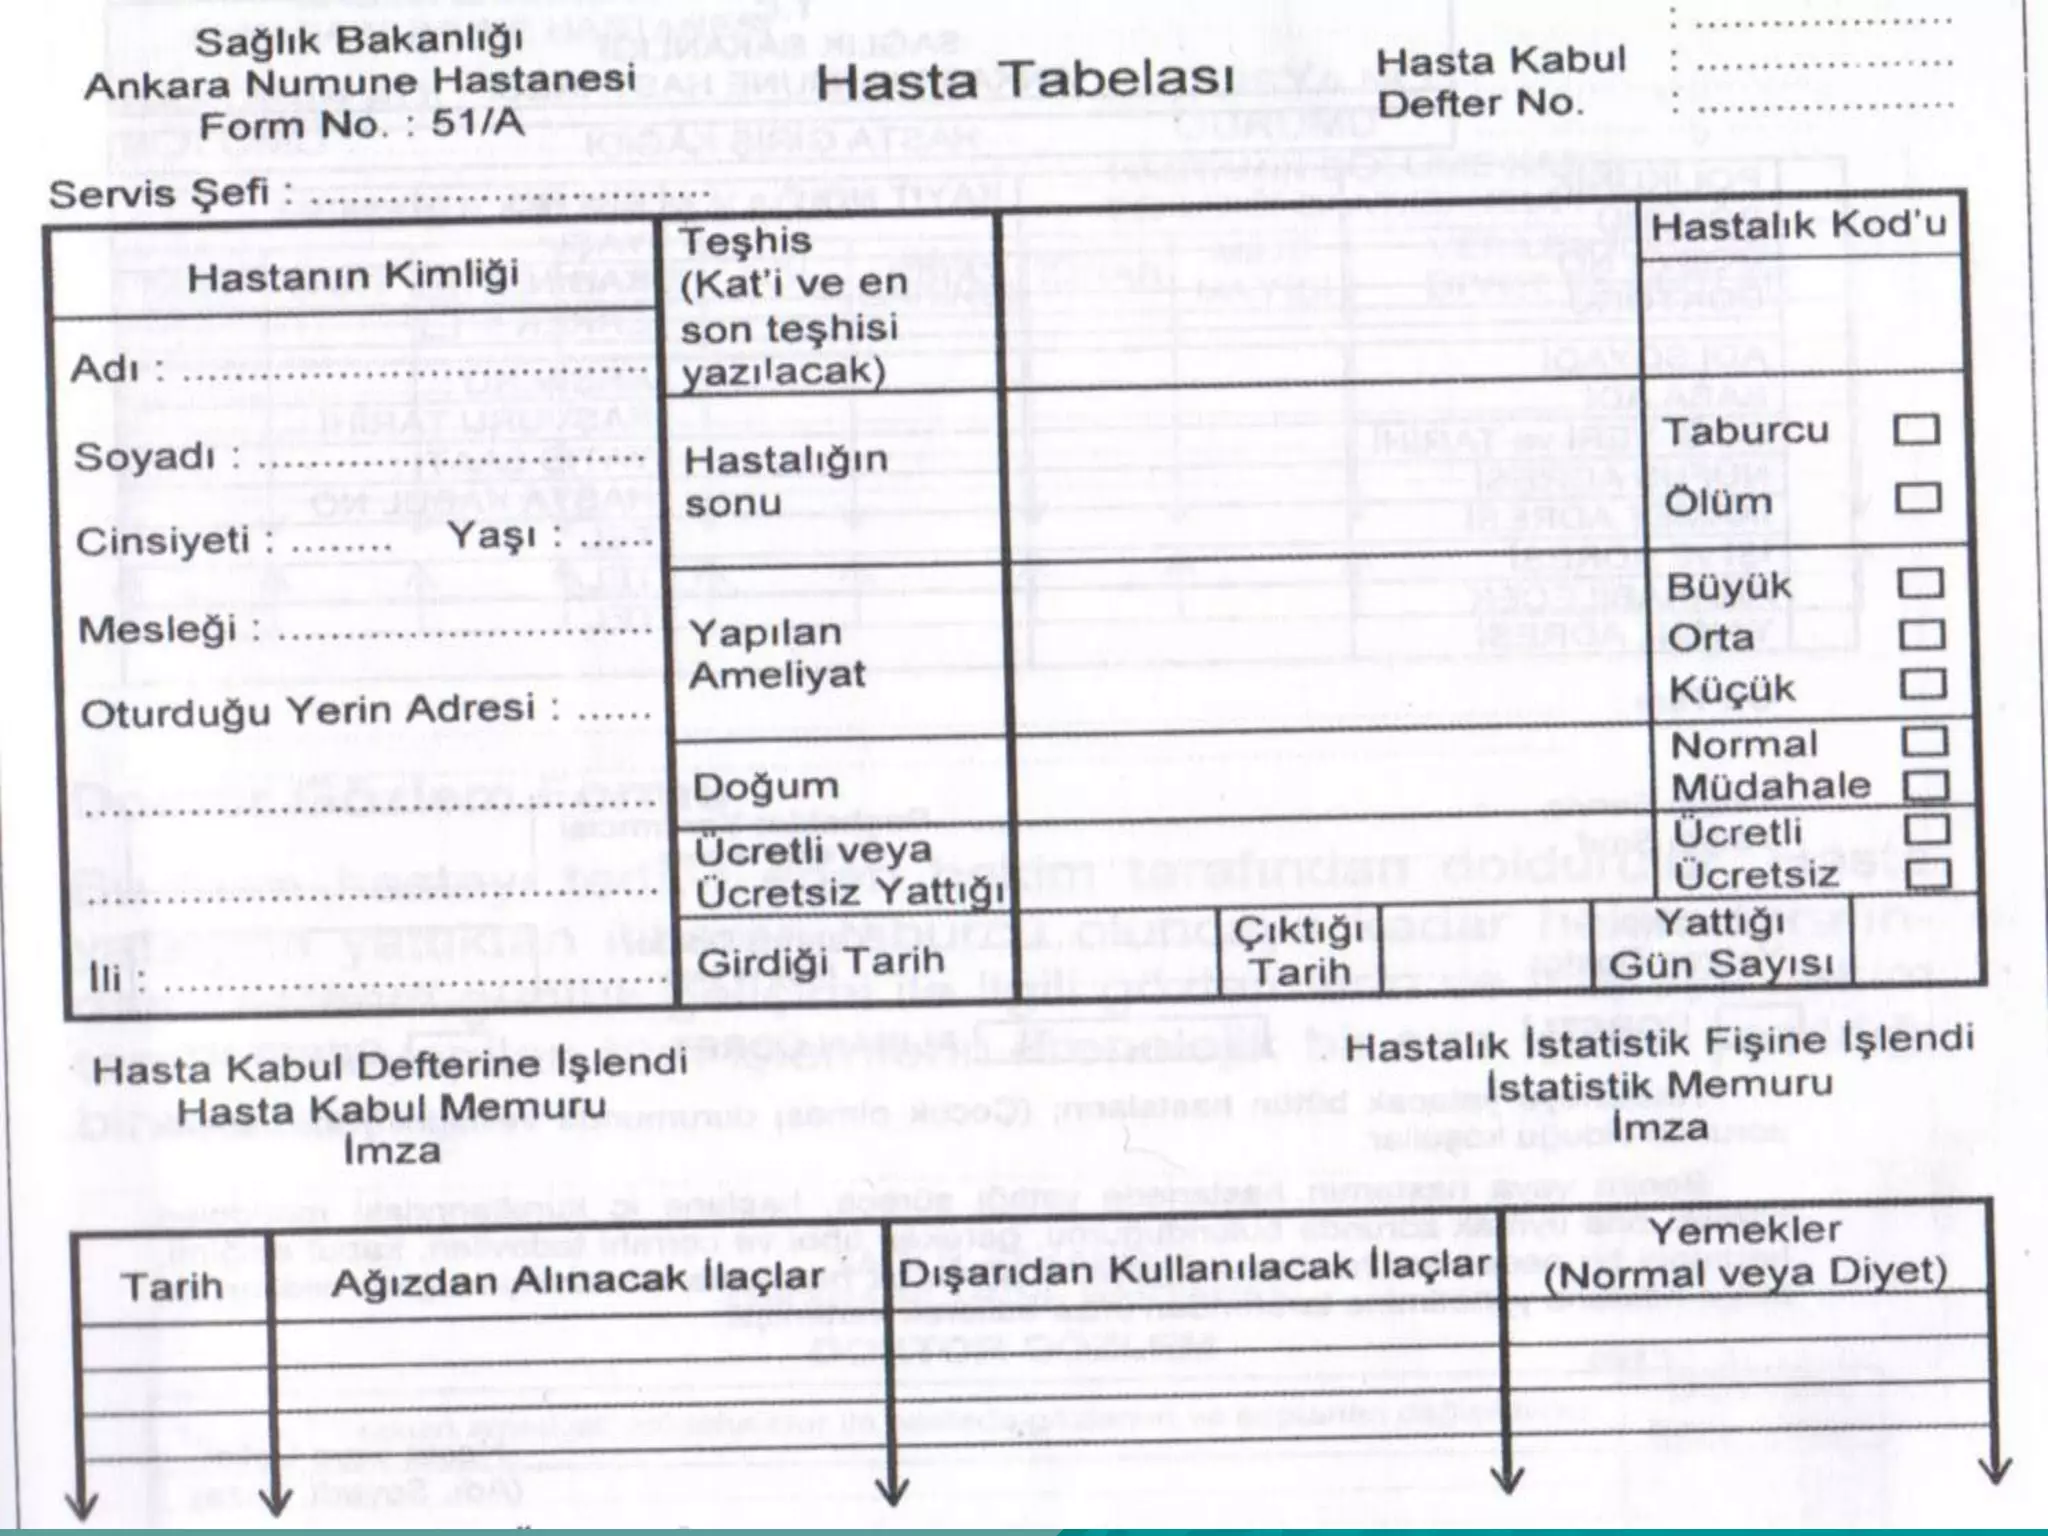 Sağlık Bakanlığı
Ankara Numune Hastanesi
Form No. : 51/A
Hasta Tabelası
Hasta Kabul :
Defter No. :
Servis Şefi :
Hastanın Kimliği
Adı :
Soyadı :
Cinsiyeti : Yaşı :
Mesleği :
Oturduğu Yerin Adresi :
İli :
Teşhis
(Kat'i ve en
son teşhisi
yazılacak)
Hastalık Kod'u
Hastalığın
sonu
Taburcu
Ölüm
Yapılan
Ameliyat
Büyük
Orta
Küçük
Doğum
Normal
Müdahale
Ücretli veya
Ücretsiz Yattığı
Ücretli
Ücretsiz
Girdiği Tarih
Çıktığı
Tarih
Yattığı
Gün Sayısı
Hasta Kabul Defterine İşlendi
Hasta Kabul Memuru
İmza
Hastalık İstatistik Fişine İşlendi
İstatistik Memuru
İmza
Tarih
Ağızdan Alınacak İlaçlar
Dışarıdan Kullanılacak İlaçlar
Yemekler
(Normal veya Diyet)